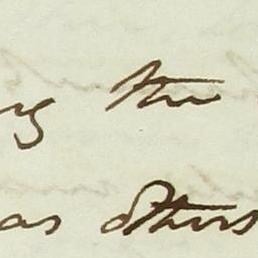 the
as others